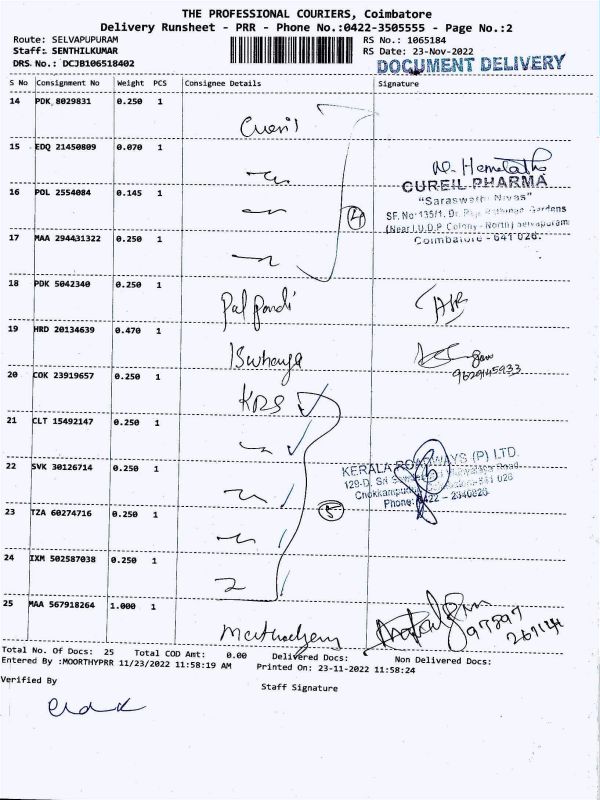 THE PROFESSIONAL COURIERS, Coimbatore
Delivery Runsheet - PRR - Phone No.:0422-3505555 - Page No.:2
Route: SELVAPUPURAM
RS No.: 1065184
Staff: SENTHILKUMAR
RS Date: 23-Nov-2022
DRS No.: DCJB106518402
DOCUMENT DELIVERY
S No Consignment No Weight PCS Consignee Details Signature
14 PDK 8029831 0.250 1
15 EDQ 21450809 0.070 1
CUREIL PHARMA
"Saraswathi Nivas"
16 POL 2554084 0.145 1
4
SF. No: 135/1, Dr. Gardens
(Near I.U.D.P. Colony - North) Selvapuram
Coimbatore - 641 026.
17 MAA 294431322 0.250 1
18 PDK 5042340 0.250 1
Pal pandi
19 HRD 20134639 0.470 1
9629145933
20 COK 23919657 0.250 1
KRS
21 CLT 15492147 0.250 1
KERALA ROADWAYS (P) LTD.
22 SVK 30126714 0.250 1
5
23 TZA 60274716 0.250 1
24 IXM 502587038 0.250 1
25 MAA 567918264 1.000 1
97897
Total No. Of Docs: 25 Total COD Amt: 0.00 Delivered Docs: Non Delivered Docs:
Entered By :MOORTHYPRR 11/23/2022 11:58:19 AM Printed On: 23-11-2022 11:58:24
Verified By
Staff Signature